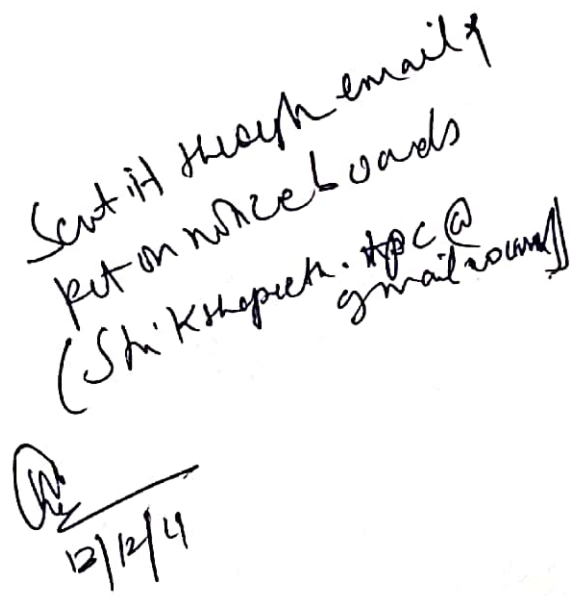 Sent it through email &
put on notice boards
(Shikshapeeth.tpc@
gmail.com)
12/12/